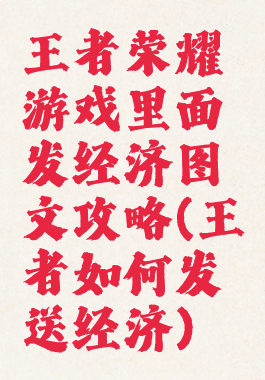 王者荣耀
游戏里面
发经济图
文攻略(王
者如何发
送经济)